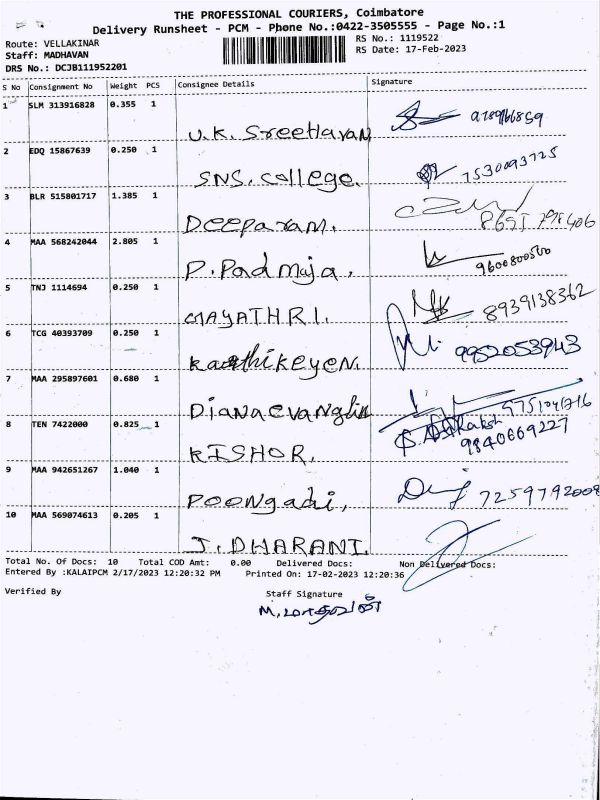 THE PROFESSIONAL COURIERS, Coimbatore
Delivery Runsheet - PCM - Phone No.:0422-3505555 - Page No.:1
Route: VELLAKINAR
RS No.: 1119522
Staff: MADHAVAN
RS Date: 17-Feb-2023
DRS No.: DCJB111952201
S No Consignment No Weight PCS Consignee Details Signature
1 SLM 313916828 0.355 1
U.K. SreeHavan
2 EDQ 15867639 0.250 1
SNS. College. 7530093725
3 BLR 515801717 1.385 1
DEEPARAM. 8651798406
4 MAA 568242044 2.805 1
P. Padmaja. 9600800500
5 TNJ 1114694 0.250 1
MAYATHRI. 8939138362
6 TCG 40393709 0.250 1
Karthikeyen. 9952053943
7 MAA 295897601 0.680 1
Diana evanglin
8 TEN 7422000 0.825 1
KISHOR. 9840669227
9 MAA 942651267 1.040 1
Poongadi, 7259792008
10 MAA 569074613 0.205 1
J. DHARANI.
Total No. Of Docs: 10 Total COD Amt: 0.00 Delivered Docs: Non Delivered Docs:
Entered By :KALAIPCM 2/17/2023 12:20:32 PM Printed On: 17-02-2023 12:20:36
Verified By Staff Signature
M.மாதவன்